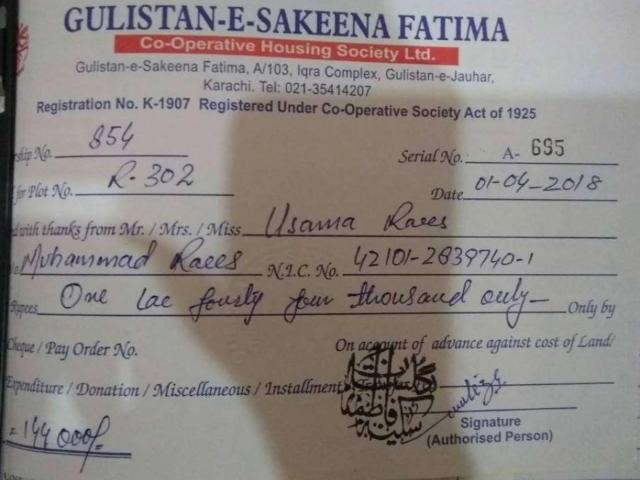 GULISTAN-E-SAKEENA FATIMA
Co-Operative Housing Society Ltd.
Gulistan-e-Sakeena Fatima, A/103, Iqra Complex, Gulistan-e-Jauhar,
Karachi. Tel: 021-35414207
Registration No. K-1907 Registered Under Co-Operative Society Act of 1925
ship No. 854
Serial No.: A- 695
for Plot No. R-302
Date 01-04-2018
with thanks from Mr. / Mrs. / Miss Usama Raees
Muhammad Raees N.I.C. No. 42101-2839740-1
Rupees One lac fourty four thousand only Only by
Cheque / Pay Order No. On account of advance against cost of Land/
Expenditure / Donation / Miscellaneous / Installment
= 144000/-
Signature
(Authorised Person)